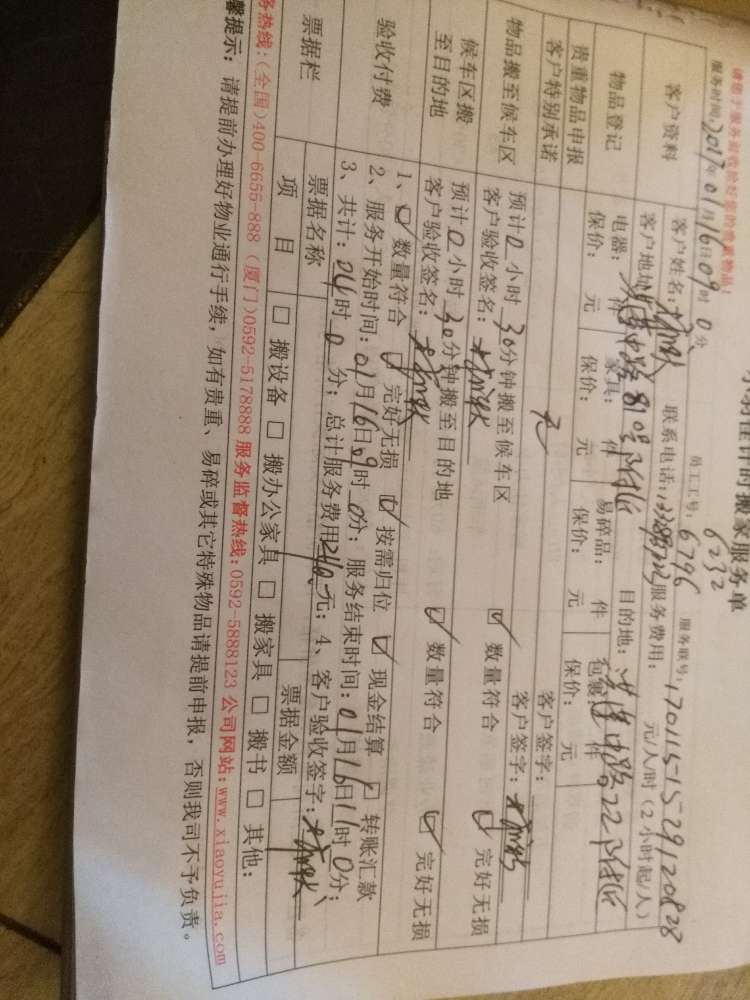 时搬家服务单
6232
员工工号：6796 服务联号：170115-15291120828
服务时间：2017年01月16日09时0分
客户资料
客户姓名： 联系电话： 服务费用： 元/人/时（2小时起/人）
客户地址： 81号 目的地：
物品登记
电器： 件 家具： 件 易碎品： 件 包裹 件
保价： 元 保价： 元 保价： 元 保价： 元
贵重物品申报
客户特别承诺
无
客户签字：
客户签字：
物品搬至候车区
预计0小时30分钟搬至候车区
客户验收签名：
☑ 数量符合 ☑ 完好无损
候车区搬
至目的地
预计0小时30分钟搬至目的地
客户验收签名：
☑ 数量符合 ☑ 完好无损
验收付费
1、☑ 数量符合 ☑ 完好无损 ☑ 按需归位 ☑ 现金结算 □ 转账汇款
2、服务开始时间：01月16日09时0分；服务结束时间：01月16日11时0分；
3、共计：04时0分；总计服务费用240元；4、客户验收签字：
票据栏
票据名称 票据金额
项 目 □ 搬设备 □ 搬办公家具 □ 搬家具 □ 搬书 □ 其他：
务热线：（全国）400-6655-888（厦门）0592-5178888 服务监督热线：0592-5888123 公司网站：www.xiaoyujia.com
馨提示：请提前办理好物业通行手续，如有贵重、易碎或其它特殊物品请提前申报，否则我司不予负责。